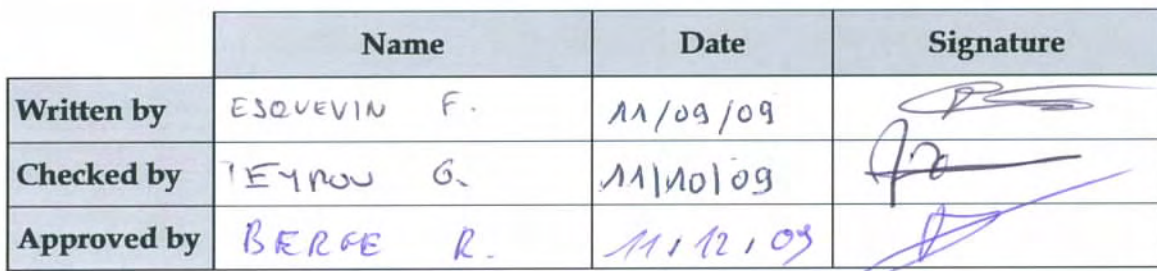 Name Date Signature
Written by ESQUEVIN F. 11/09/09
Checked by G. 11/10/09
Approved by R. 11/12/09